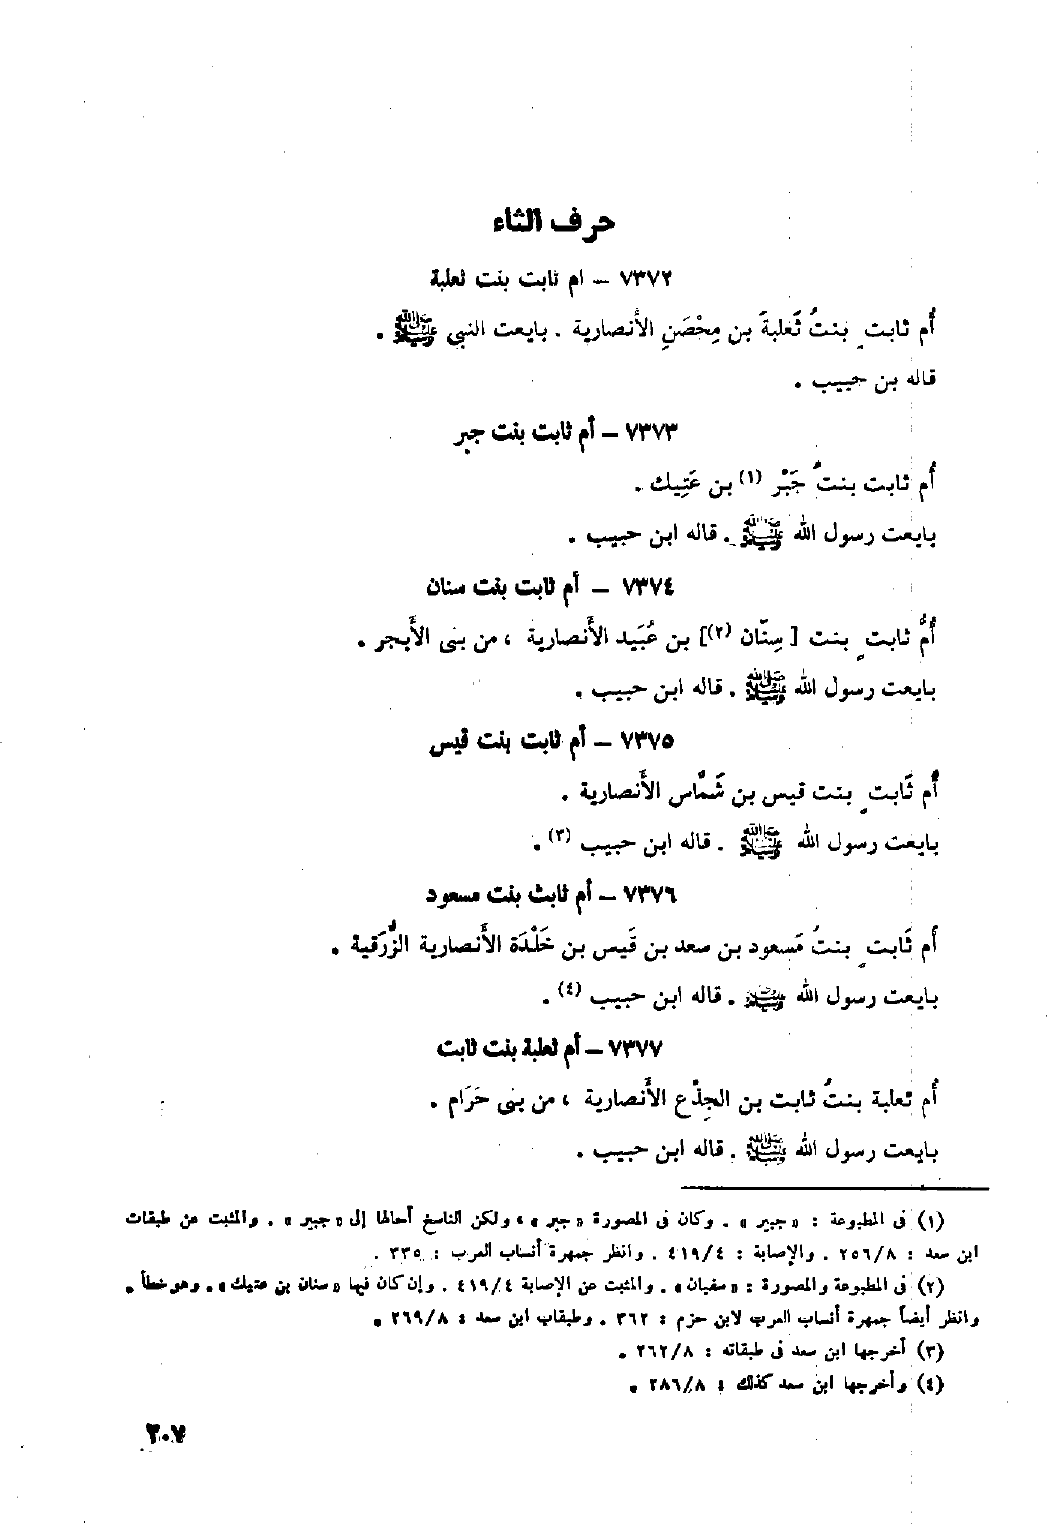 حرف الثاء
٧٣٧٢ – ام ثابت بنت ثعلبة
أُم ثابت ٍ بنتُ ثَعلبةَ بن مِحْصَنِ الأَنصارية . بايعت النبى ﷺ .
قاله بن حبيب .
٧٣٧٣ – أم ثابت بنت جبر
أُم ثابت بنتُ جَبْر (١) بن عَتِيك .
بايعت رسول الله ﷺ . قاله ابن حبيب .
٧٣٧٤ – أم ثابت بنت سنان
أُمُّ ثابت ٍ بنت [ سِنَّان (٢)] بن عُبَيد الأَنصارية ، من بنى الأَبجر .
بايعت رسول الله ﷺ . قاله ابن حبيب .
٧٣٧٥ – أم ثابت بنت قيس
أُم ثَابت ٍ بنت قيس بن شَمَّاس الأَنصارية .
بايعت رسول الله ﷺ . قاله ابن حبيب (٣) .
٧٣٧٦ – أم ثابث بنت مسعود
أُم ثَابت ٍ بنتُ مَسعود بن سعد بن قَيس بن خَلْدَة الأَنصارية الزُّرَقية .
بايعت رسول الله ﷺ . قاله ابن حبيب (٤) .
٧٣٧٧ – أم ثعلبة بنت ثابت
أُم ثعلبة بنتُ ثابت بن الجِذْع الأَنصارية ، من بنى حَرَام .
بايعت رسول الله ﷺ . قاله ابن حبيب .
(١) فى المطبوعة : « جبير » . وكان فى المصورة « جبر » ، ولكن الناسخ أحالها إلى « جبير » . والمثبت عن طبقات
ابن سعد : ٢٥٦/٨ . والإصابة : ٤١٩/٤ . وانظر جمهرة أنساب العرب : ٣٣٥ .
(٢) فى المطبوعة والمصورة : « سفيان » . والمثبت عن الإصابة ٤١٩/٤ . وإن كان فيها « سنان بن عتيك » . وهو خطأ .
وانظر أيضاً جمهرة أنساب العرب لابن حزم : ٣٦٢ . وطبقاب ابن سعد : ٢٦٩/٨ .
(٣) أخرجها ابن سعد فى طبقاته : ٢٦٢/٨ .
(٤) وأخرجها ابن سعد كذلك : ٢٨٦/٨ .
٢٠٧